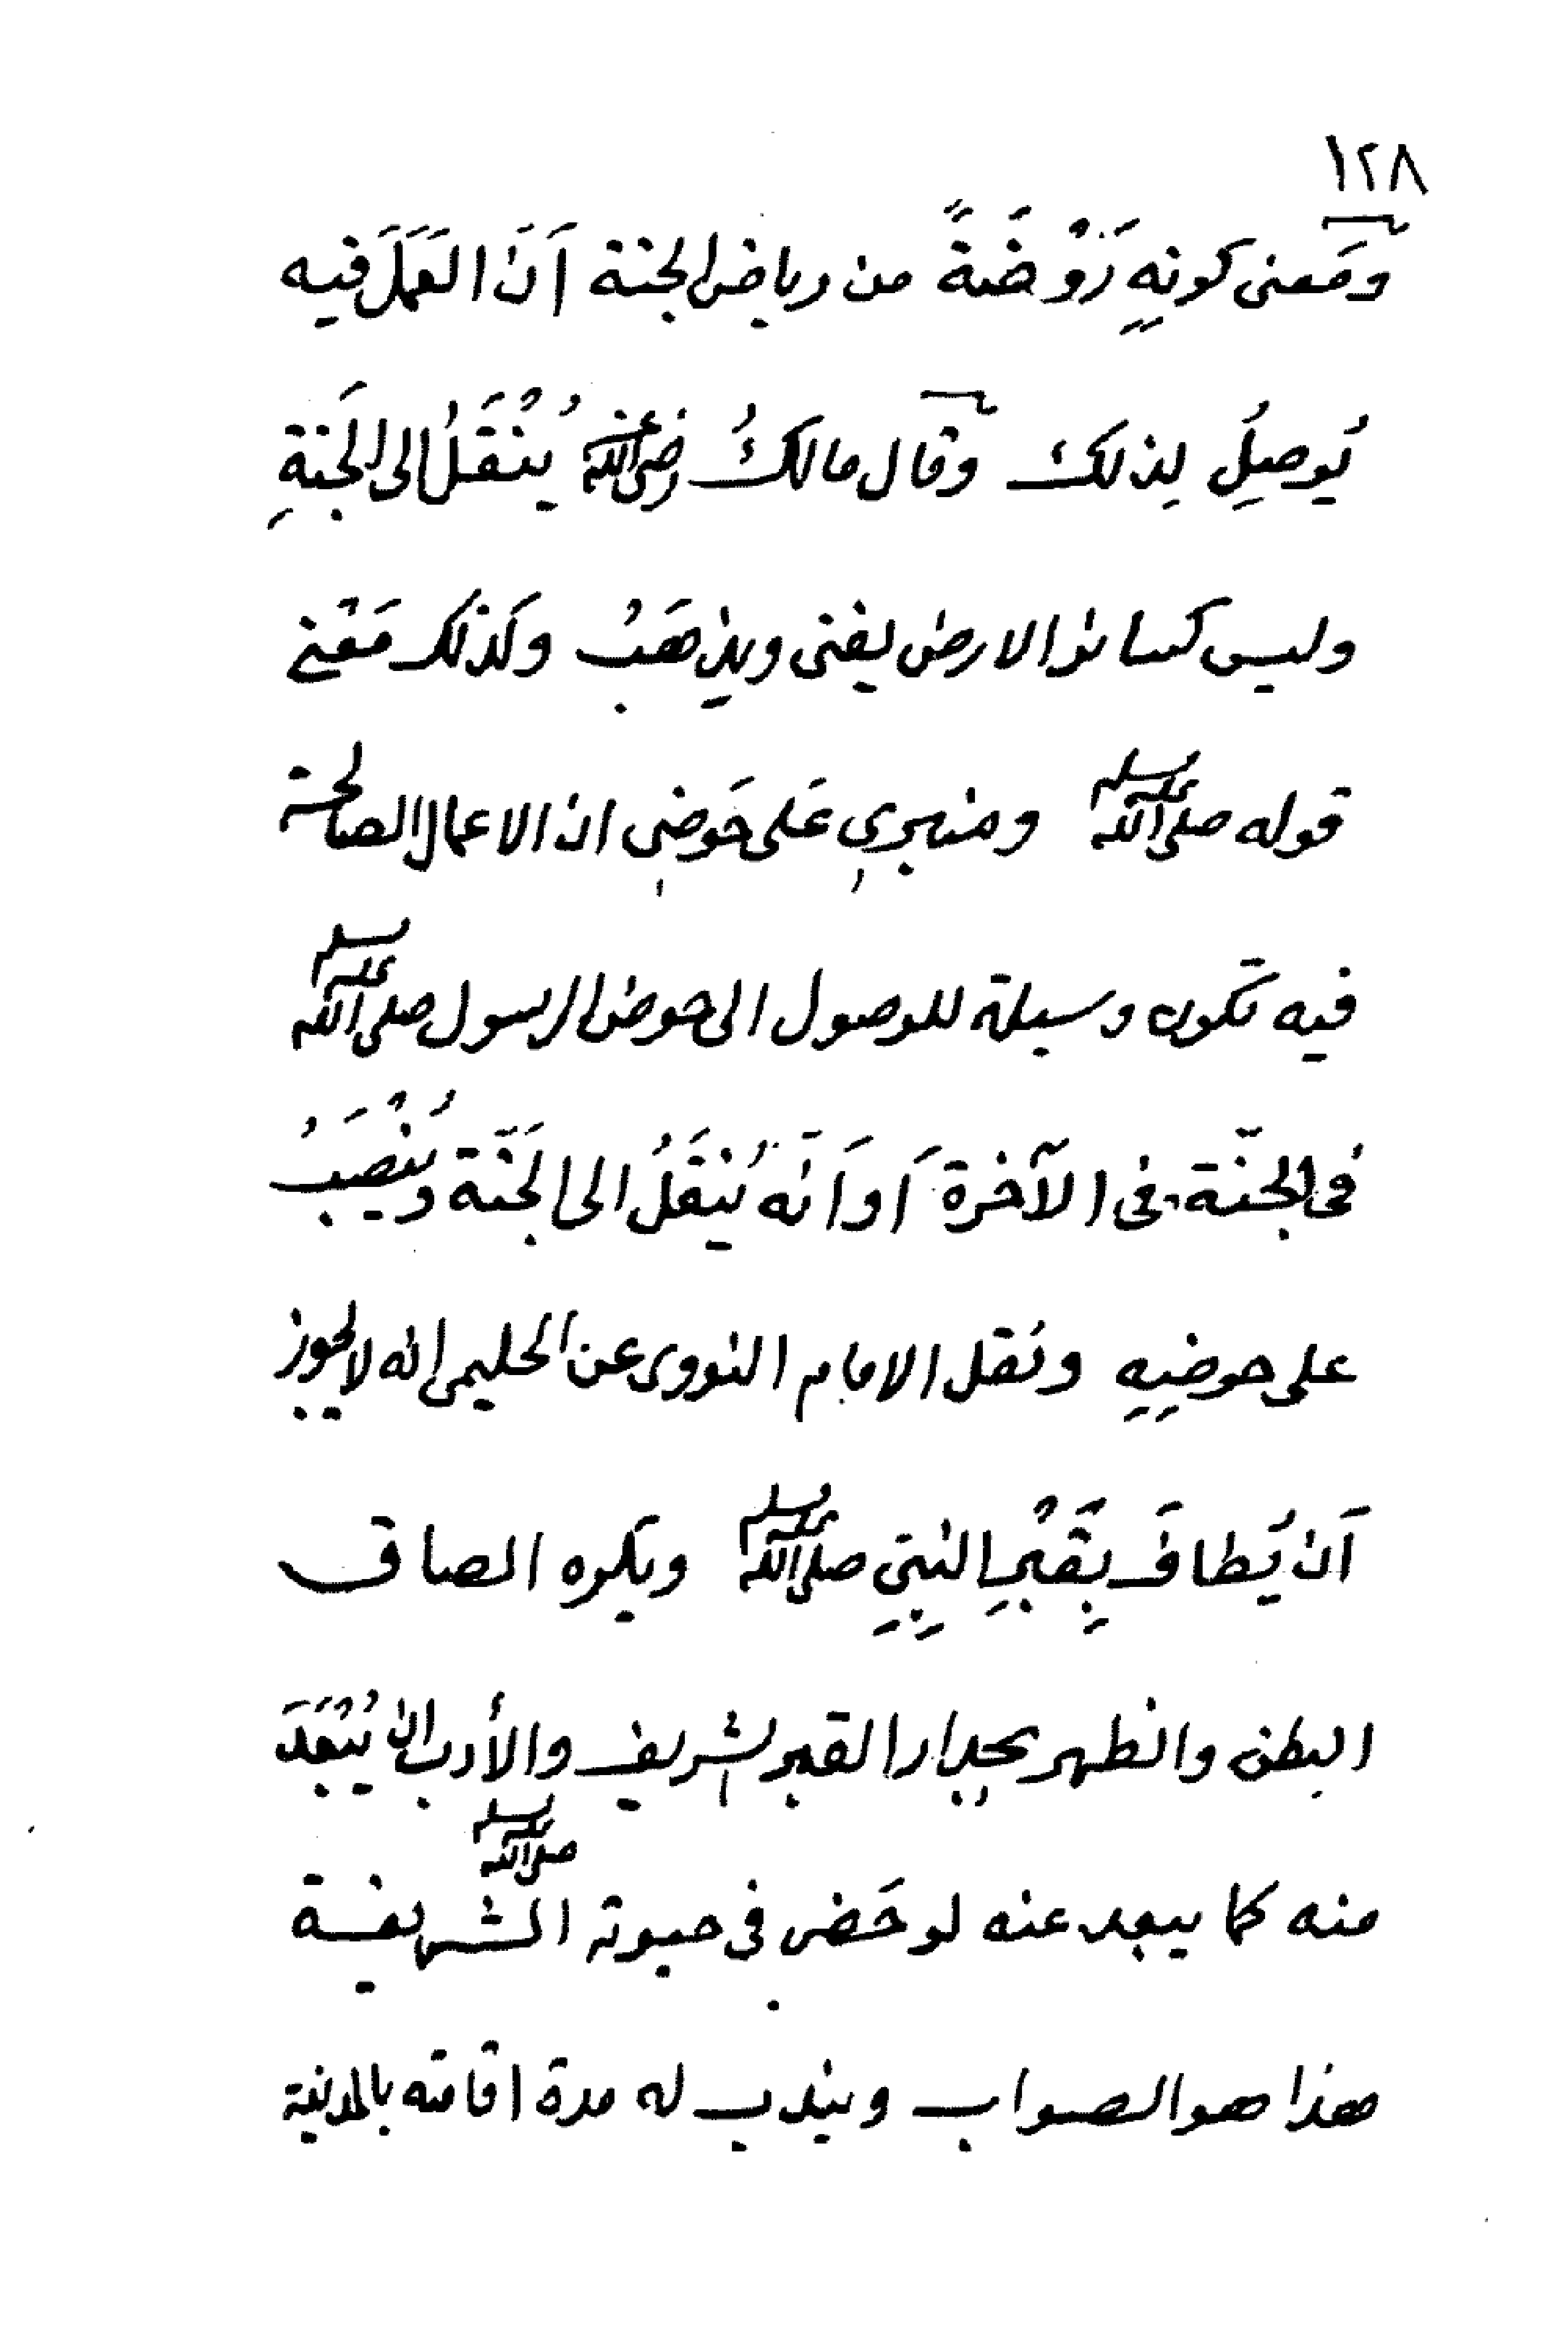 ١٢٨
ومَعنى كونِهِ رَوْضَةً من رياض الجنة اَنَ العَمَلَ فيه
يُوصِلُ لِذلك وقال مالكُ رضى الله عنه يُنْقَلُ الى الجَنةِ
وليس كسائر الارض يفنى ويذهَبُ وكَذلك مَعْنى
قوله صلى الله عليه وسلم ومنبرى عَلى حَوضى ان الاعمال الصالحة
فيه تكون وسيلة للوصول الى حوض الرسول صلى الله عليه وسلم
فى الجنّة فى الآخرة اَو اَنّه يُنقَلُ الى الجَنّة ويُنْصَبُ
على حوضِهِ ونقل الامام النووى عن الحليمى انه لا يجوز
اَن يُطافَ بِقَبْرِ النبِىِ صلى الله عليه وسلم ويكره الصاق
البطن والظهر بجدار القبر الشريف والأدب ان يُبْعَدَ
منه كما يبعد عنه لو حَضر فى حيوته صلى الله عليه وسلم الشريفة
هذا هو الصواب ويندب له مدة اقامته بالمدينة